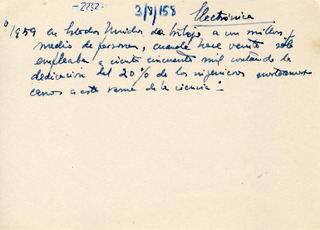 -2732-
3/8/158 Electrónica
1959 en Estados Unidos da trabajo a un millon y
medio de personas, cuando hace veinte sólo
empleaba a ciento cincuenta mil contando la
dedicación del 20% de los ingenieros norteameri-
canos a esta rama de la ciencia".